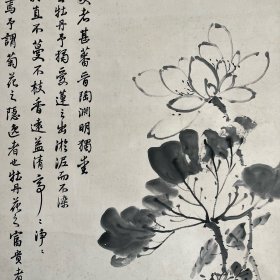 愛者甚蕃晉陶淵明獨愛
牡丹予獨愛蓮之出淤泥而不染
直不蔓不枝香遠益清亭〻淨〻
焉予謂菊花之隱逸者也牡丹花之富貴者